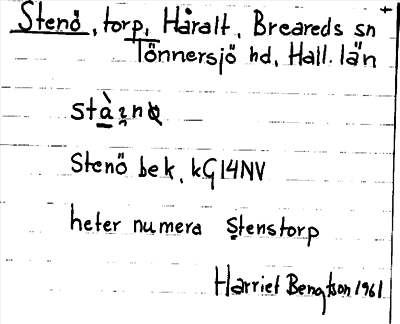 Stenö, torp, Håralt, Breareds sn
Tönnersjö hd, Hall. län
Stenö bek, kG14NV
heter numera Stenstorp
Harriet Bengtson 1961